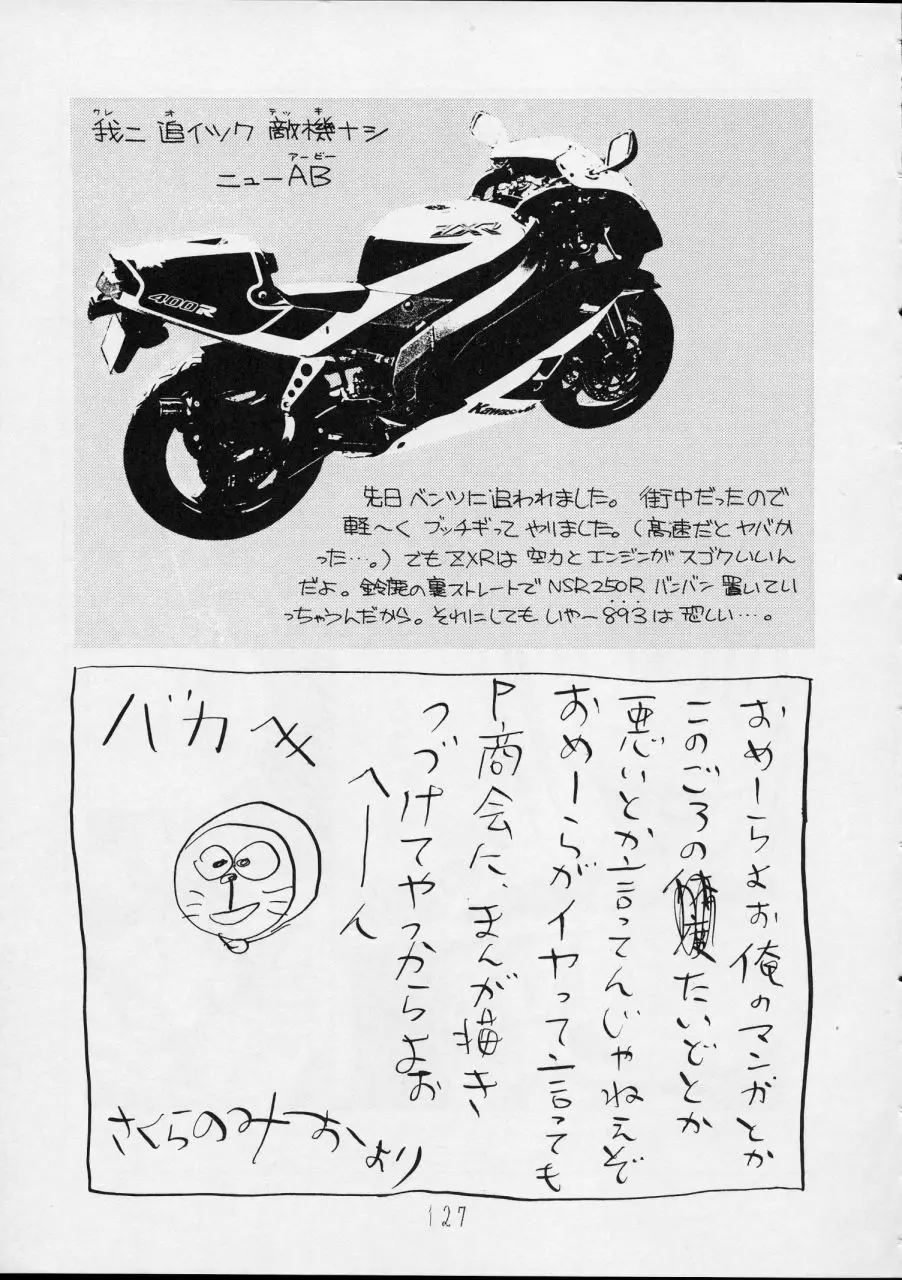 我ニ追イツク敵機ナシ
ニューAB
ZXR
400R
Kawasaki
先日ベンツに追われました。街中だったので
軽〜くブッチギってやりました。(高速だとヤバか
った…。)でもZXRは空力とエンジンがスゴクいいん
だよ。鈴鹿の裏ストレートでNSR250Rバンバン置いてい
っちゃうんだから。それにしてもいやー893は恐しい…。
おめーらよお俺のマンガとか
このごろのたいどとか
悪いとか言ってんじゃねえぞ
おめーらがイヤって言っても
P.商会に、まんが描き
つづけてやっからよお
へーん
バカめ
さくらのみおより
127